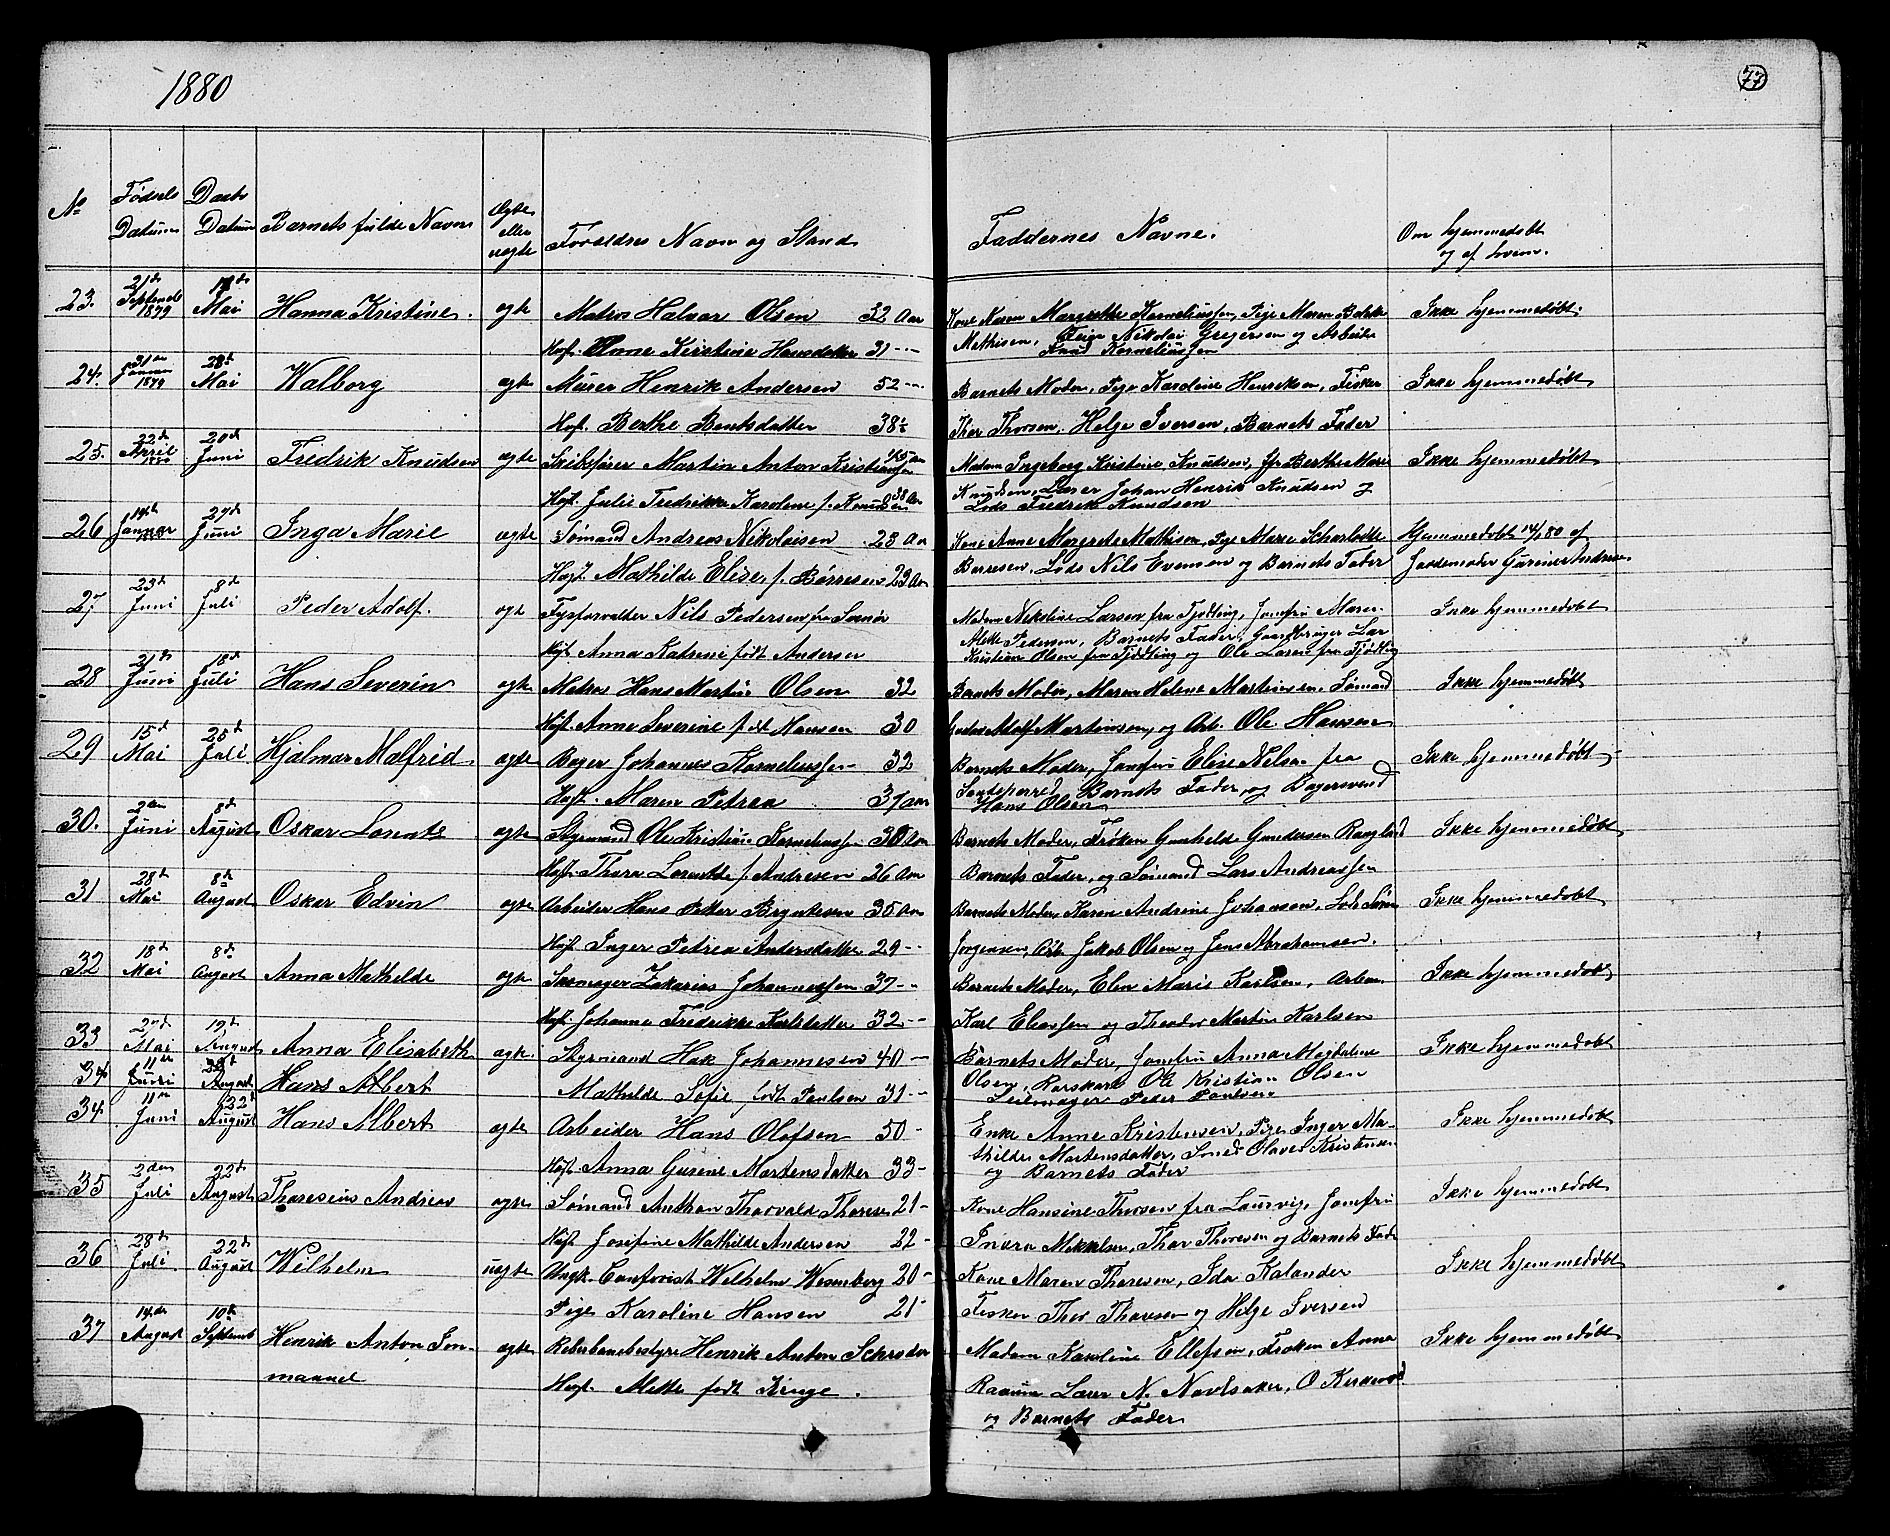 1880
77
No
Fødsels Datum
Daabs Datum
Barnets fulde Navn
Ægte eller uægte
Forældres Navn og Stand
Faddernes Navne.
Om hjemmedøbt og af hvem.
23. 21de Septemb 1879 Mai Hanna Kristine. ægte Matros Halvor Olsen 32 Aar
Høst. Anne Kirstine Hansdatter 31
Kone Maren Margrethe Korneliussen, Pige Maren
Mathisen, Nikolai Gregersen og Arbeider
Knud Korneliussen
Ikke hjemmedøbt.
24. 31 Januar 1879 28d Mai Walborg ægte Murer Henrik Andersen 52
Hust. Berthe Berntsdatter 38½
Barnets Moder, Pige Karoline Henriksen, Fisker
Thor Thorsen, Helge Iversen, Barnets Fader
Ikke hjemmedøbt
25. 22d April 1880 20d Juni Fredrik Knudsen ægte Skibsfører Martin Anton Kristiansen
Hust. Julie Fredrikke Karoline f. Knudsen 38 Aar
Madam Ingeborg Kristine Knudsen, Berthe Marie
Knudsen, Lærer Johan Henrik Knudsen og
Lods Fredrik Knudsen
Ikke hjemmedøbt
26 14d Januar 27d Juni Inga Marie ægte Sømand Andreas Nikolaisen 23 Aar
Hust. Mathilde Elise f. Børresen 22 Aar
Kone Anne Margrete Mathisen, Pige Marie Scharlotte
Børresen, Lods Nils Evensen og Barnets Fader
Hjemmedøbt 14/1 80 af
Jordemoder
27 23d Juni 8d Juli Peder Adolf. ægte Fyrforvalter Nils Pedersen fra
Hust. Anna Katrine født Andersen
Madam Nikoline Larsen fra Tjødling, Jomfru Maren
Pedersen, Barnets Fader, Gaardbruger Lars
Kristian Olsen fra Tjødling og Ole Larsen fra Tjødling
Ikke hjemmedøbt
28 Juni 18d Juli Hans Severin ægte Matros Hans Martin Olsen 32
Hust. Anne Severine født Hansen 30
Barnets Moder, Maren Helene Martinsen, Sømand
Adolf Martinsen, og Arb. Ole Hansen
Ikke hjemmedøbt
29 15d Mai 25d Juli Hjalmar Malfrid ægte Bager Johannes Korneliussen 32
Hust. Maren Petrea 37 aar
Barnets Moder, Jomfru Elise Nilsen fra
Sandeherred, Barnets Fader, og Bagersvend
Hans Olsen
Ikke hjemmedøbt
30. 2den Juni 8d August Oskar Lorents ægte Styrmand Ole Kristian Korneliussen 30 Aar
Hust. Thora f. Andresen 26 Aar
Barnets Moder, Frøken Gunhilde Gundersen
Barnets Fader, og Sømand Lars Andreassen
Ikke hjemmedøbt
31 28d Mai 8d August Oskar Edvin ægte Arbeider Hans Petter Bryntesen 35 Aar
Hust. Inger Petrea Andersdatter 29
Barnets Moder, Karen Andrine Johansen,
Jørgensen, Arb. Jakob Olsen og Jens Abrahamsen.
Ikke hjemmedøbt
32 18 Mai 8d August Anna Mathilde ægte Skomager Zakarias Johannessen 37
Hust. Johanne Fredrikke Karlsdatter 32
Barnets Moder, Elen Marie Karlsen, Arbei.
Karl Eliassen og Theodor Martin Karlsen
Ikke hjemmedøbt
33 2nd Mai August Anna Elisabeth ægte Styrmand Hak Johannesen 40
Mathilde Sofie født Paulsen 31
Barnets Moder, Jomfru Anna Magdalene
Olsen, Ole Kristian Olsen
Seilmager Peder Paulsen
Ikke hjemmedøbt
34 11te Juni August Hans Albert
34 11te Juni 22d August Hans Albert ægte Arbeider Hans Olofsen 50
Hust. Anna Gurine Martensdatter 33
Enke Anne Kristensen, Pige Inger Ma-
thilde Martensdatter, Smed Olaves Kristensen
og Barnets Fader
Ikke hjemmedøbt
35 2den Juli 22d August Tharesius Andreas ægte Sømand Anthon Thorvald Thoresen 21
Hust. Josefine Mathilde Andersen 22
Kone Hansine Thorsen fra Laurvig, Jomfru
Indra Mikkelsen, Thor Thoresen og Barnets Fader
Ikke hjemmedøbt
36 28d Juli 22d August Wilhelm uægte Ungk. Wilhelm Wesenberg 20
Pige Karoline Hansen 21
Kone Maren Thoresen, Ida Kalander
Fisker Thor Thoresen og Helge Iversen
Ikke hjemmedøbt
37 14de August 10de Septemb Henrik Anton Im-
manuel
ægte Reberbanebestyrer Henrik Anton Schrøder
Hust. Mette født Kruge.
Madam Karoline Ellefsen, Frøken Anna
Raaum Lærer N. Navlsaker, O.
og Barnets Fader
Ikke hjemmedøbt